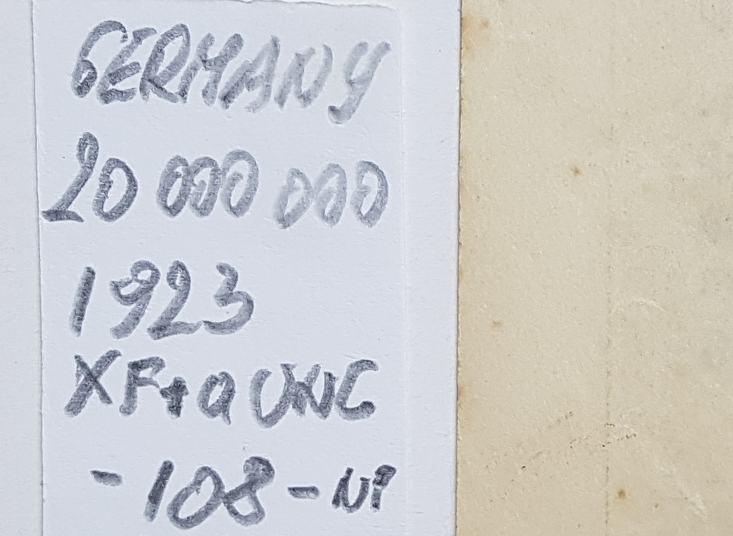 GERMANY
20 000 000
1923
XF+a UNC
-108-NP